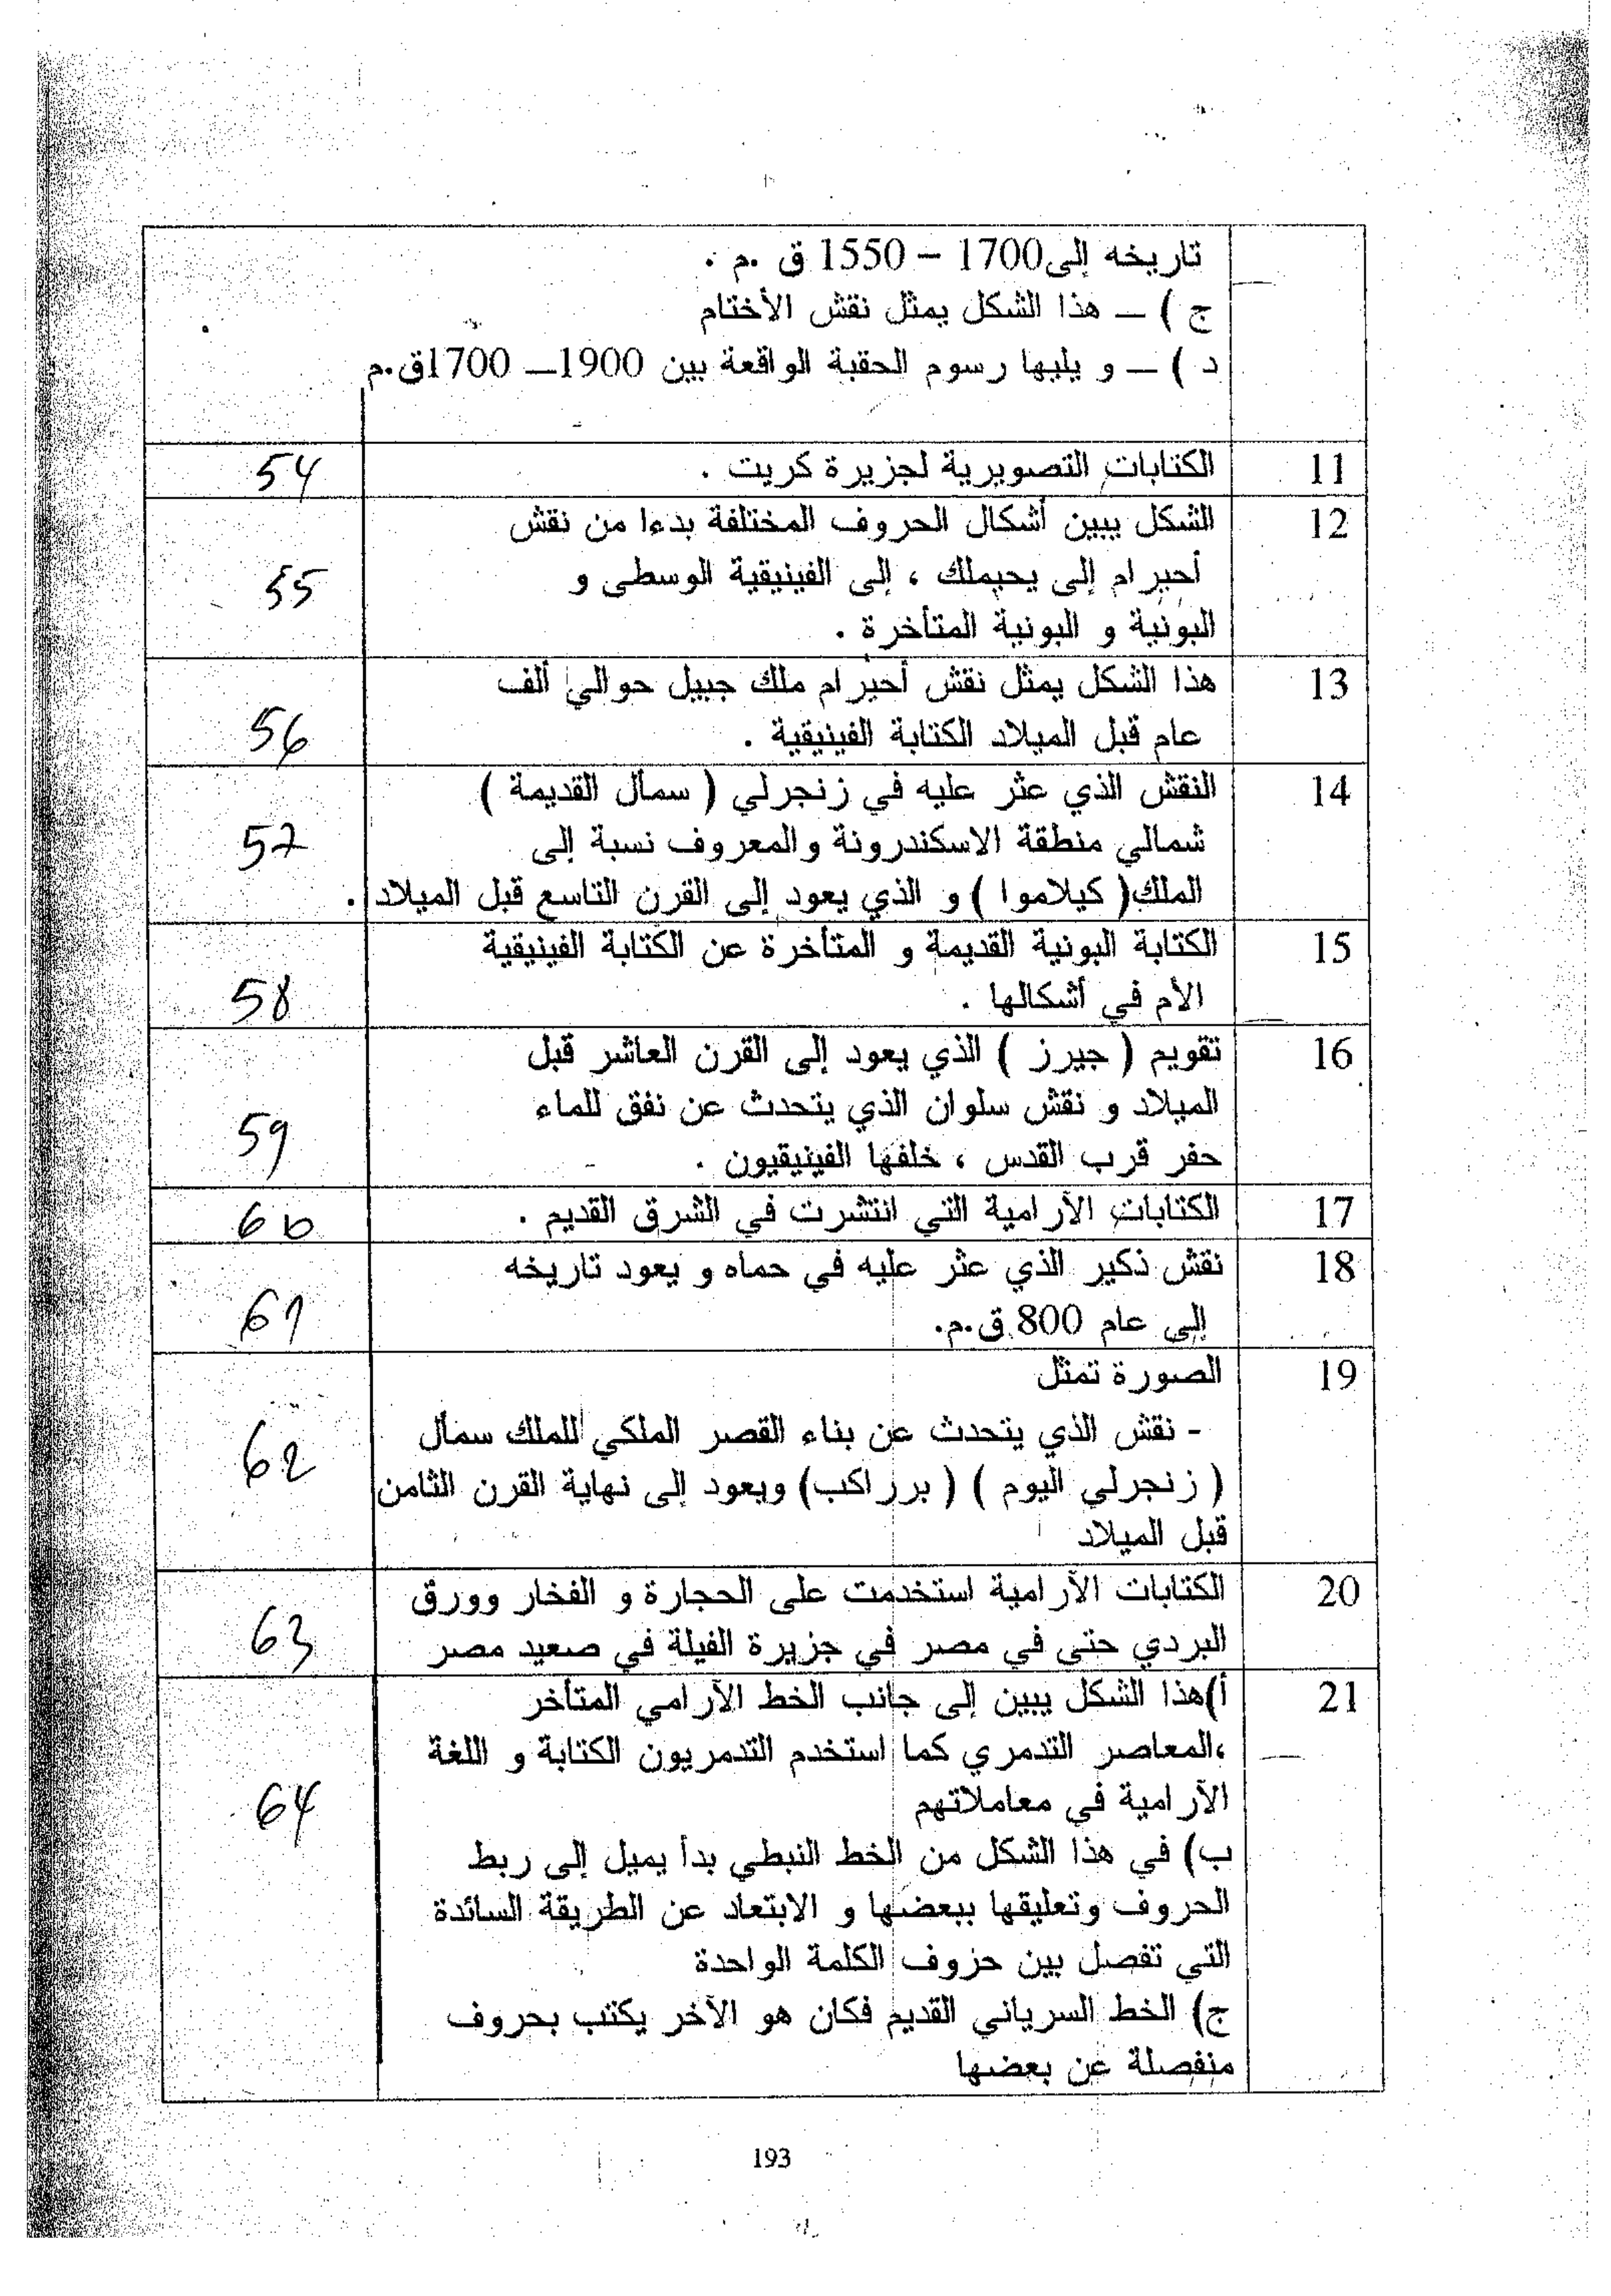 تاريخه إلى 1700 – 1550 ق .م .
ج ) – هذا الشكل يمثل نقش الأختام
د ) – و يليها رسوم الحقبة الواقعة بين 1900– 1700ق.م
11 الكتابات التصويرية لجزيرة كريت . 54
12 الشكل يبين أشكال الحروف المختلفة بدءا من نقش
أحيرام إلى يحيملك ، إلى الفينيقية الوسطى و 55
البونية و البونية المتأخرة .
13 هذا الشكل يمثل نقش أحيرام ملك جبيل حوالي ألف
عام قبل الميلاد الكتابة الفينيقية . 56
14 النقش الذي عثر عليه في زنجرلي ( سمأل القديمة )
شمالي منطقة الاسكندرونة والمعروف نسبة إلى 57
الملك( كيلاموا ) و الذي يعود إلى القرن التاسع قبل الميلاد .
15 الكتابة البونية القديمة و المتأخرة عن الكتابة الفينيقية
الأم في أشكالها . 58
16 تقويم ( جيرز ) الذي يعود إلى القرن العاشر قبل
الميلاد و نقش سلوان الذي يتحدث عن نفق للماء 59
حفر قرب القدس ، خلفها الفينيقيون .
17 الكتابات الآرامية التي انتشرت في الشرق القديم . 60
18 نقش ذكير الذي عثر عليه في حماه و يعود تاريخه
إلى عام 800 ق.م. 61
19 الصورة تمثل
- نقش الذي يتحدث عن بناء القصر الملكي للملك سمأل 62
( زنجرلي اليوم ) ( برراكب) ويعود إلى نهاية القرن الثامن
قبل الميلاد
20 الكتابات الآرامية استخدمت على الحجارة و الفخار وورق
البردي حتى في مصر في جزيرة الفيلة في صعيد مصر 63
21 أ)هذا الشكل يبين إلى جانب الخط الآرامي المتأخر
،المعاصر التدمري كما استخدم التدمريون الكتابة و اللغة
الآرامية في معاملاتهم 64
ب) في هذا الشكل من الخط النبطي بدأ يميل إلى ربط
الحروف وتعليقها ببعضها و الابتعاد عن الطريقة السائدة
التي تفصل بين حزوف الكلمة الواحدة
ج) الخط السرياني القديم فكان هو الآخر يكتب بحروف
منفصلة عن بعضها
193